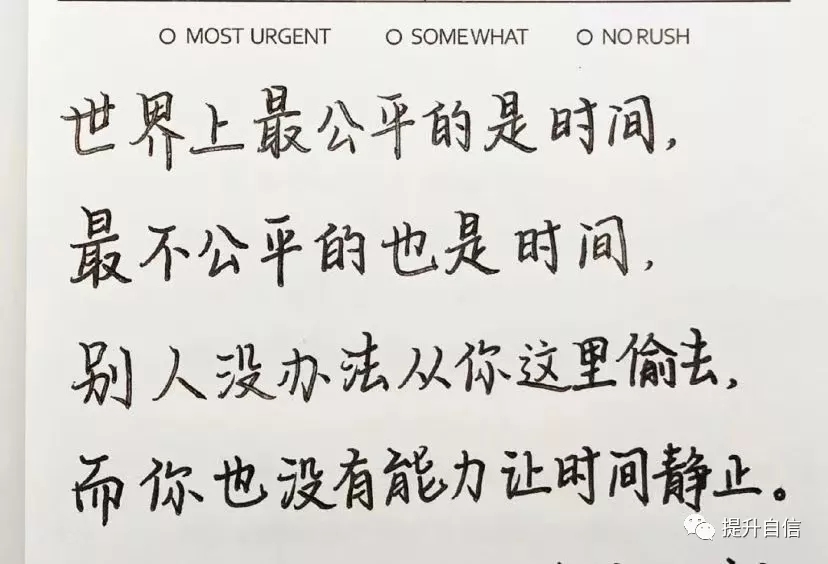 ○ MOST URGENT ○ SOMEWHAT ○ NO RUSH
世界上最公平的是时间,
最不公平的也是时间,
别人没办法从你这里偷去,
而你也没有能力让时间静止。
提升自信